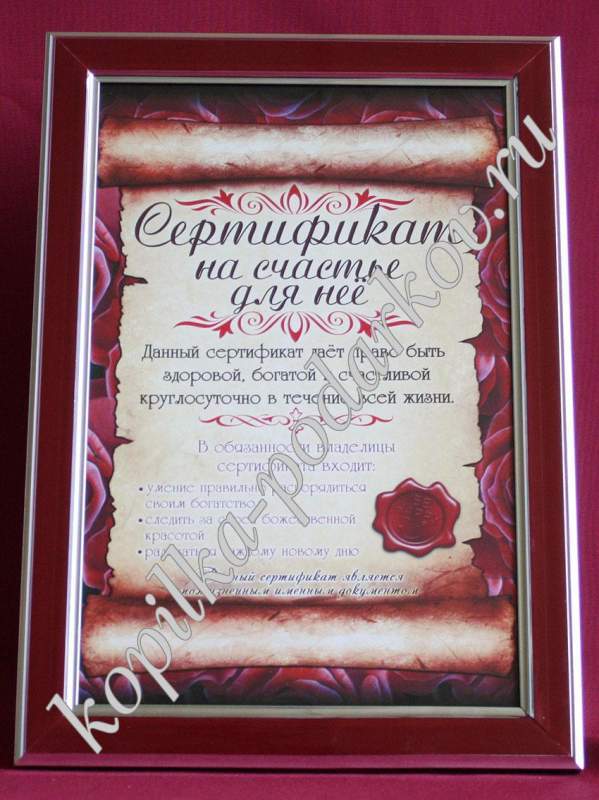 Сертификат
на счастье
для неё
Данный сертификат даёт право быть
здоровой, богатой и счастливой
круглосуточно в течение всей жизни.
В обязанности владелицы
сертификата входит:
• умение правильно распорядиться
своим богатством
• следить за своей божественной
красотой
• радоваться каждому новому дню
Данный сертификат является
пожизненным именным документом
kopilka-podarkov.ru